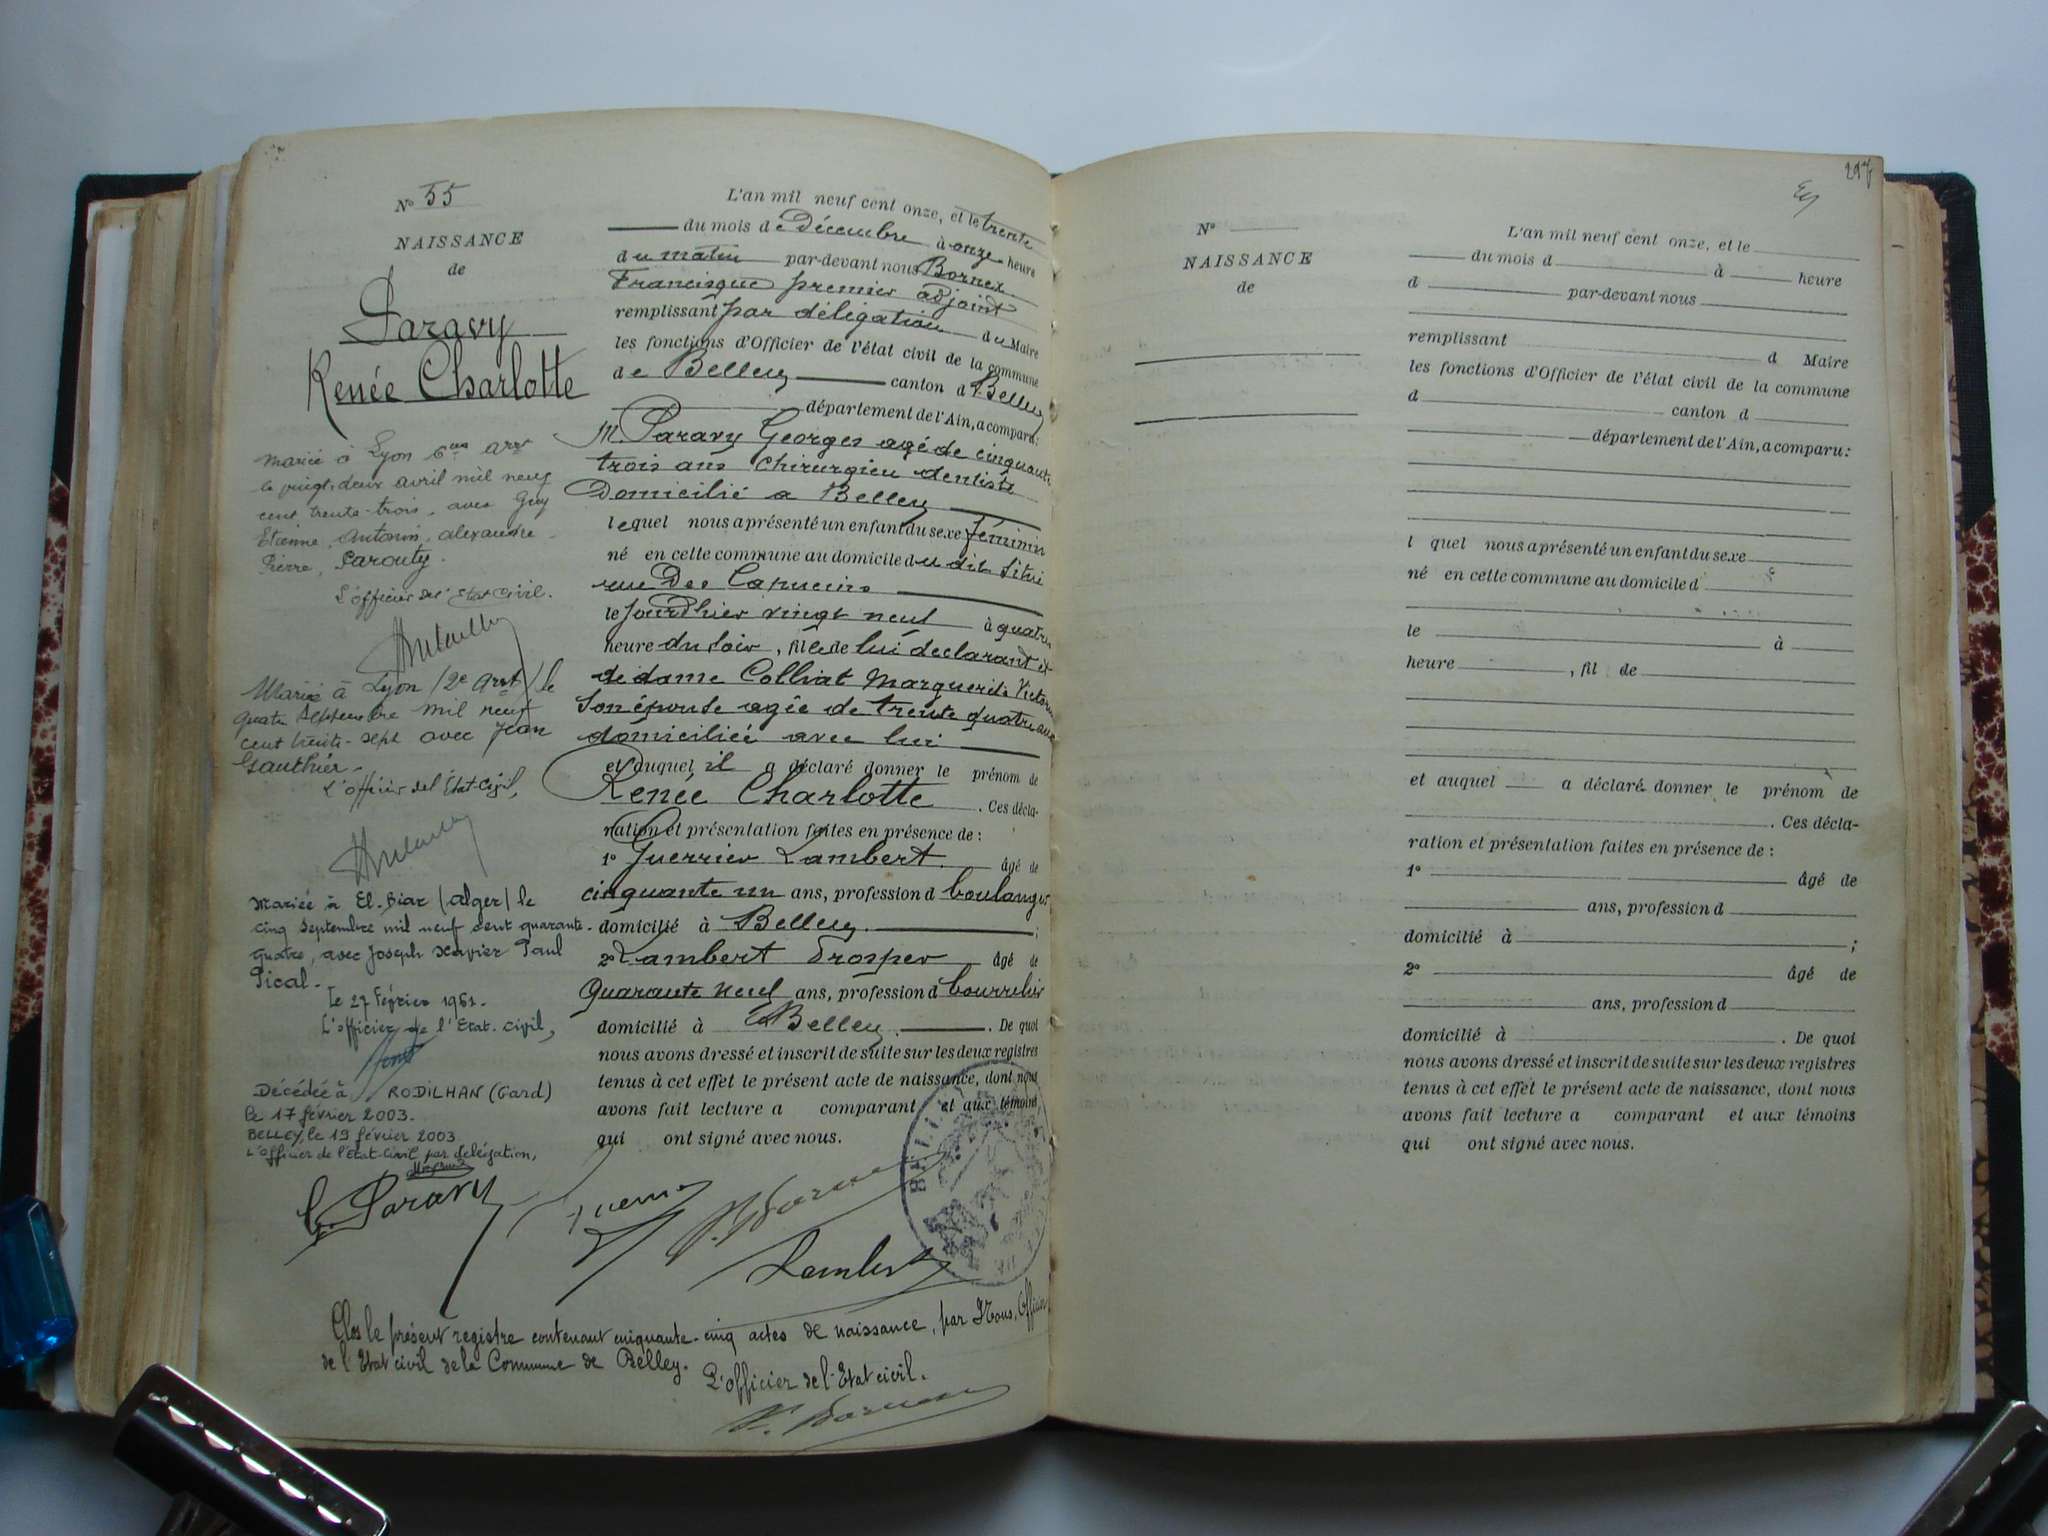 N° 55
NAISSANCE
de
Paravy
Renée Charlotte
Mariée à Lyon 6me arrt
le vingt-deux avril mil neuf
cent trente-trois, avec Guy
Etienne, Antonin, alexandre
Pierre, Parouty.
L'officier de l'Etat civil.
Mariée à Lyon (2e Arrt) le
quatre Septembre mil neuf
cent trente-sept avec Jean
Gauthier.
L'officier de l'État-Civil,
Mariée à El-Biar (Alger) le
cinq Septembre mil neuf cent quarante-
quatre, avec Joseph Xavier Paul
Pical.
Le 27 Février 1961.
L'officier de l'Etat-civil,
Décédée à RODILHAN (Gard)
le 17 février 2003.
BELLEY, le 19 février 2003.
L'Officier de l'Etat-Civil par délégation,
L'an mil neuf cent onze, et le trente
du mois de Décembre à onze heure
du matin par-devant nous Bornex
Francisque premier adjoint
remplissant par délégation du Maire
les fonctions d'Officier de l'état civil de la commune
de Belley canton d Belley
département de l'Ain, a comparu:
M. Paravy Georges agé de cinquante
trois ans chirurgien dentiste
Domicilié a Belley
lequel nous a présenté un enfant du sexe féminin
né en cette commune au domicile du dit Situé
rue Des Capucins
le jourd'hier vingt neuf à quatre
heure du soir, fille de lui déclarant et
de dame Colliat Marguerite Victorine
Son épouse agée de trente quatre ans
domiciliée avec lui
et auquel il a déclaré donner le prénom de
Renée Charlotte. Ces décla-
ration et présentation faites en présence de :
1° Guerrier Lambert âgé de
cinquante un ans, profession d boulanger
domicilié à Belley ;
2° Lambert Prosper âgé de
Quarante neuf ans, profession d bourrelier
domicilié à Belley. De quoi
nous avons dressé et inscrit de suite sur les deux registres
tenus à cet effet le présent acte de naissance, dont nous
avons fait lecture a comparant et aux témoins,
qui ont signé avec nous.
G. Paravy
Lambert
Clos le présent registre contenant cinquante-cinq actes de naissance, par Nous, Officier
de l'Etat civil de la Commune de Belley.
L'officier de l'Etat civil.
297
N°
NAISSANCE
de
L'an mil neuf cent onze, et le
du mois d à heure
d par-devant nous
remplissant d Maire
les fonctions d'Officier de l'état civil de la commune
d canton d
département de l'Ain, a comparu:
l quel nous a présenté un enfant du sexe
né en cette commune au domicile d
le à
heure , fil de
et auquel a déclaré donner le prénom de
. Ces décla-
ration et présentation faites en présence de :
1° âgé de
ans, profession d
domicilié à ;
2° âgé de
ans, profession d
domicilié à . De quoi
nous avons dressé et inscrit de suite sur les deux registres
tenus à cet effet le présent acte de naissance, dont nous
avons fait lecture a comparant et aux témoins
qui ont signé avec nous.